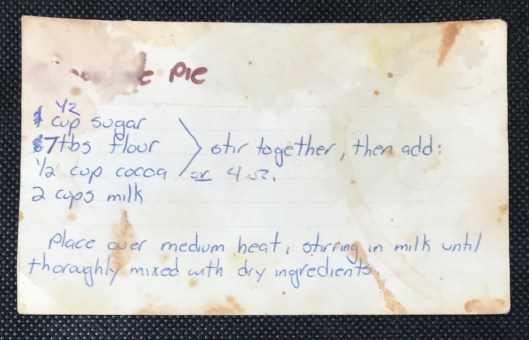 e Pie
1 1/2 cup sugar
7 tbs flour > stir together, then add:
1/2 cup cocoa or 4 oz.
2 cups milk
Place over medium heat, stirring in milk until
thoroughly mixed with dry ingredients.